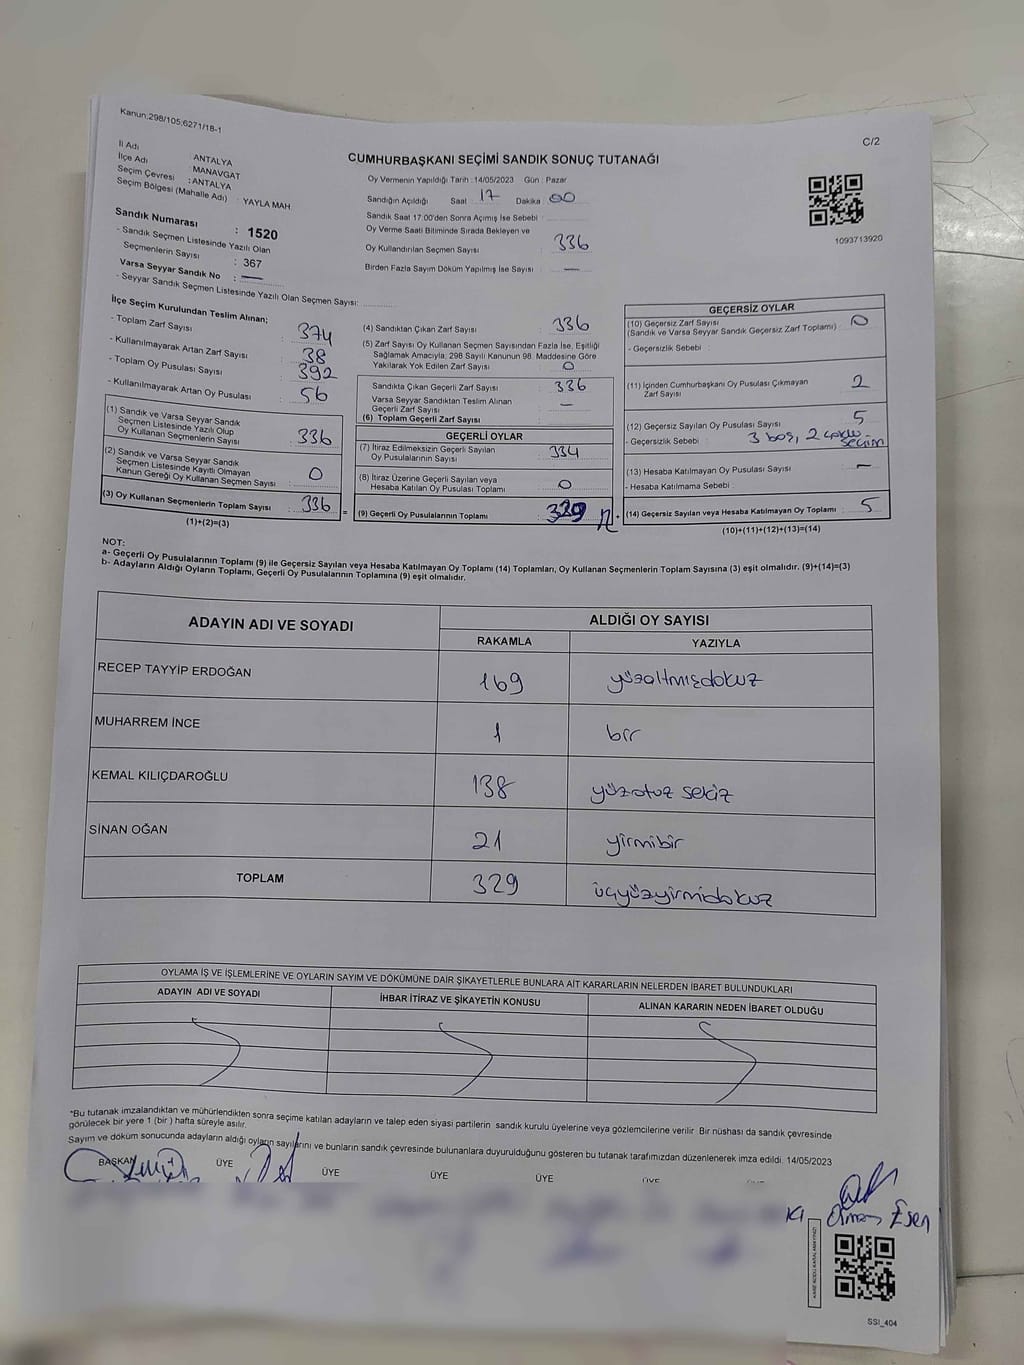 Kanun;298/105;6271/18-1
C/2
İl Adı : ANTALYA
İlçe Adı : MANAVGAT
Seçim Çevresi : ANTALYA
Seçim Bölgesi (Mahalle Adı) : YAYLA MAH.
CUMHURBAŞKANI SEÇİMİ SANDIK SONUÇ TUTANAĞI
Oy Vermenin Yapıldığı Tarih :14/05/2023 Gün : Pazar
Sandığın Açıldığı Saat : 17 Dakika : 00
Sandık Saat 17:00'den Sonra Açımış İse Sebebi :
Oy Verme Saati Bitiminde Sırada Bekleyen ve
Oy Kullandırılan Seçmen Sayısı : 336
Birden Fazla Sayım Döküm Yapılmış İse Sayısı : —
1093713920
Sandık Numarası : 1520
- Sandık Seçmen Listesinde Yazılı Olan
Seçmenlerin Sayısı : 367
Varsa Seyyar Sandık No : —
- Seyyar Sandık Seçmen Listesinde Yazılı Olan Seçmen Sayısı:
İlçe Seçim Kurulundan Teslim Alınan;
- Toplam Zarf Sayısı : 374
- Kullanılmayarak Artan Zarf Sayısı : 38
- Toplam Oy Pusulası Sayısı : 392
- Kullanılmayarak Artan Oy Pusulası : 56
(1) Sandık ve Varsa Seyyar Sandık
Seçmen Listesinde Yazılı Olup
Oy Kullanan Seçmenlerin Sayısı : 336
(2) Sandık ve Varsa Seyyar Sandık
Seçmen Listesinde Kayıtlı Olmayan
Kanun Gereği Oy Kullanan Seçmen Sayısı : 0
(3) Oy Kullanan Seçmenlerin Toplam Sayısı : 336
(1)+(2)=(3)
=
(4) Sandıktan Çıkan Zarf Sayısı : 336
(5) Zarf Sayısı Oy Kullanan Seçmen Sayısından Fazla İse, Eşitliği
Sağlamak Amacıyla; 298 Sayılı Kanunun 98. Maddesine Göre
Yakılarak Yok Edilen Zarf Sayısı : 0
Sandıkta Çıkan Geçerli Zarf Sayısı : 336
Varsa Seyyar Sandıktan Teslim Alınan
Geçerli Zarf Sayısı : —
(6) Toplam Geçerli Zarf Sayısı :
GEÇERLİ OYLAR
(7) İtiraz Edilmeksizin Geçerli Sayılan
Oy Pusulalarının Sayısı : 334
(8) İtiraz Üzerine Geçerli Sayılan veya
Hesaba Katılan Oy Pusulası Toplamı : 0
(9) Geçerli Oy Pusulalarının Toplamı : 329
+
GEÇERSİZ OYLAR
(10) Geçersiz Zarf Sayısı : 0
(Sandık ve Varsa Seyyar Sandık Geçersiz Zarf Toplamı)
- Geçersizlik Sebebi :
(11) İçinden Cumhurbaşkanı Oy Pusulası Çıkmayan
Zarf Sayısı : 2
(12) Geçersiz Sayılan Oy Pusulası Sayısı : 5
- Geçersizlik Sebebi : 3 boş, 2 çoklu
seçim
(13) Hesaba Katılmayan Oy Pusulası Sayısı : —
- Hesaba Katılmama Sebebi :
(14) Geçersiz Sayılan veya Hesaba Katılmayan Oy Toplamı : 5
(10)+(11)+(12)+(13)=(14)
NOT:
a- Geçerli Oy Pusulalarının Toplamı (9) ile Geçersiz Sayılan veya Hesaba Katılmayan Oy Toplamı (14) Toplamları, Oy Kullanan Seçmenlerin Toplam Sayısına (3) eşit olmalıdır. (9)+(14)=(3)
b- Adayların Aldığı Oyların Toplamı, Geçerli Oy Pusulalarının Toplamına (9) eşit olmalıdır.
ADAYIN ADI VE SOYADI
ALDIĞI OY SAYISI
RAKAMLA YAZIYLA
RECEP TAYYİP ERDOĞAN 169 yüzaltmışdokuz
MUHARREM İNCE 1 bir
KEMAL KILIÇDAROĞLU 138 yüzotuz sekiz
SİNAN OĞAN 21 yirmibir
TOPLAM 329 üçyüzyirmidokuz
OYLAMA İŞ VE İŞLEMLERİNE VE OYLARIN SAYIM VE DÖKÜMÜNE DAİR ŞİKAYETLERLE BUNLARA AİT KARARLARIN NELERDEN İBARET BULUNDUKLARI
ADAYIN ADI VE SOYADI İHBAR İTİRAZ VE ŞİKAYETİN KONUSU ALINAN KARARIN NEDEN İBARET OLDUĞU
*Bu tutanak imzalandıktan ve mühürlendikten sonra seçime katılan adayların ve talep eden siyasi partilerin sandık kurulu üyelerine veya gözlemcilerine verilir. Bir nüshası da sandık çevresinde
görülecek bir yere 1 (bir ) hafta süreyle asılır.
Sayım ve döküm sonucunda adayların aldığı oyların sayılarını ve bunların sandık çevresinde bulunanlara duyurulduğunu gösteren bu tutanak tarafımızdan düzenlenerek imza edildi. 14/05/2023
BAŞKAN ÜYE ÜYE ÜYE ÜYE ÜYE
Osman Esen
SSI_404